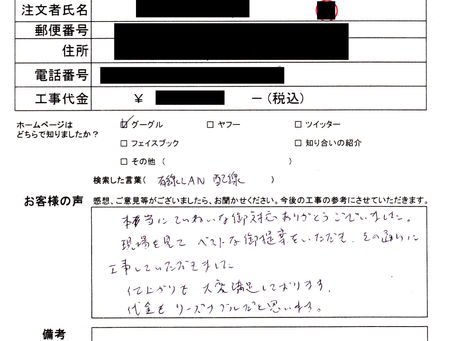 注文者氏名
郵便番号
住所
電話番号
工事代金 ¥ ー(税込)
ホームページは
どちらで知りましたか?
☑ グーグル □ ヤフー □ ツイッター
□ フェイスブック □ 知り合いの紹介
□ その他 ( )
検索した言葉( 有線LAN 配線 )
お客様の声 感想、ご意見等がございましたら、お聞かせください。今後の工事の参考にさせていただきます。
本当にていねいな御対応ありがとうございました。
現場を見て ベストな御提案をいただき、その通りに
工事していただきました
仕上がりも 大変満足しております。
代金もリーズナブルだと思います。
備考